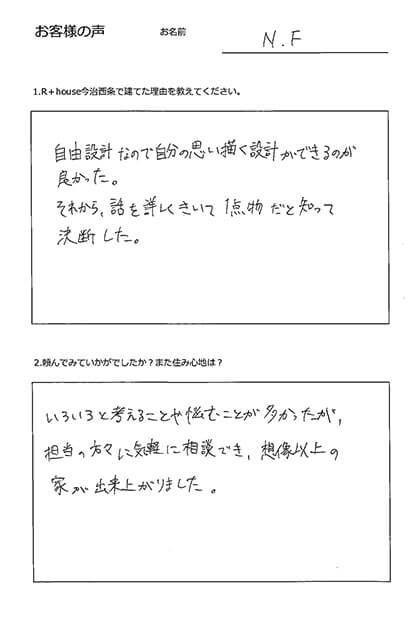 お客様の声
お名前
N.F
1.R+house今治西条で建てた理由を教えてください。
自由設計なので自分の思い描く設計ができるのが
良かった。
それから、話を詳しくきいて1点物だと知って
決断した。
2.頼んでみていかがでしたか？また住み心地は？
いろいろと考えることや悩むことが多かったが、
担当の方々に気軽に相談でき、想像以上の
家が出来上がりました。